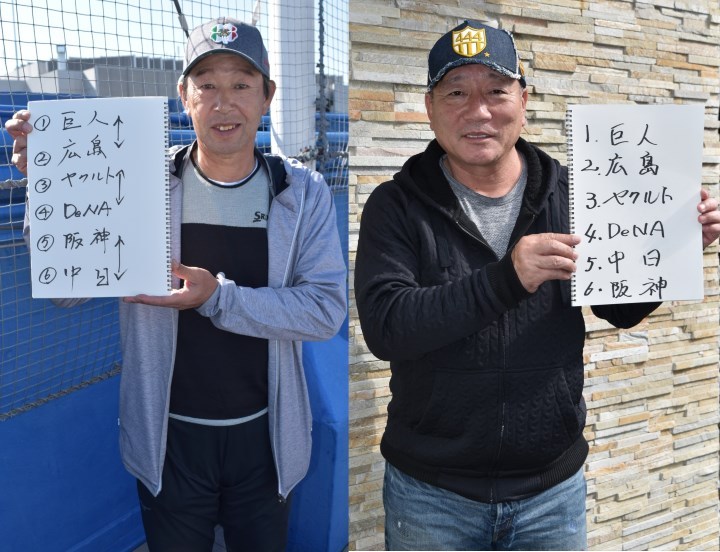 ① 巨人
② 広島
③ ヤクルト
④ DeNA
⑤ 阪神
⑥ 中日
SRI
444
1. 巨人
2. 広島
3. ヤクルト
4. DeNA
5. 中日
6. 阪神